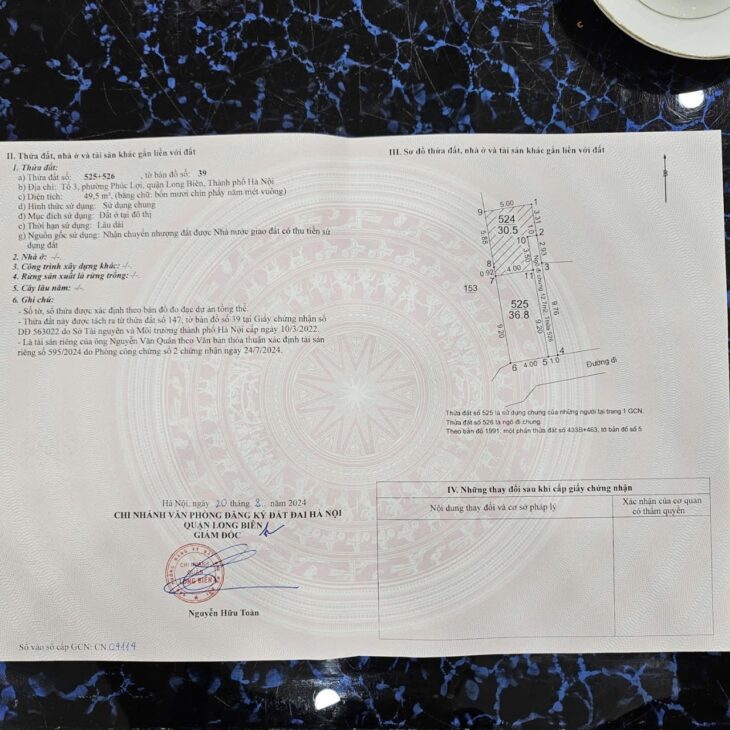 II. Thửa đất, nhà ở và tài sản khác gắn liền với đất
1. Thửa đất:
a) Thửa đất số: 525+526 , tờ bản đồ số: 39
b) Địa chỉ: Tổ 3, phường Phúc Lợi, quận Long Biên, Thành phố Hà Nội
c) Diện tích: 49,5 m², (bằng chữ: bốn mươi chín phẩy năm mét vuông)
d) Hình thức sử dụng: Sử dụng chung
đ) Mục đích sử dụng: Đất ở tại đô thị
e) Thời hạn sử dụng: Lâu dài
g) Nguồn gốc sử dụng: Nhận chuyển nhượng đất được Nhà nước giao đất có thu tiền sử
dụng đất
2. Nhà ở: -/-
3. Công trình xây dựng khác: -/-
4. Rừng sản xuất là rừng trồng: -/-
5. Cây lâu năm: -/-
6. Ghi chú:
- Số tờ, số thửa được xác định theo bản đồ đo đạc dự án tổng thể.
- Thửa đất này được tách ra từ thửa đất số 147, tờ bản đồ số 39 tại Giấy chứng nhận số
DĐ 563022 do Sở Tài nguyên và Môi trường thành phố Hà Nội cấp ngày 10/3/2022.
- Là tài sản riêng của ông Nguyễn Văn Quân theo Văn bản thỏa thuận xác định tài sản
riêng số 595/2024 do Phòng công chứng số 2 chứng nhận ngày 24/7/2024.
Hà Nội, ngày 20 tháng 8 năm 2024
CHI NHÁNH VĂN PHÒNG ĐĂNG KÝ ĐẤT ĐAI HÀ NỘI
QUẬN LONG BIÊN
GIÁM ĐỐC
CHI NHÁNH
QUẬN
LONG BIÊN
Nguyễn Hữu Toàn
Số vào sổ cấp GCN: CN
III. Sơ đồ thửa đất, nhà ở và tài sản khác gắn liền với đất
B
9 5.00 1
524
30.5
3.31
5.85
10 2
3.50
2.93
8
0.92 4.00 11 3
7
153
525
36.8
Ngõ đi chung
Thửa 526
9.20
9.20
9.76
6 4.00 5 1.0 4
Đường đi
Thửa đất số 525 là sử dụng chung của những người tại trang 1 GCN.
Thửa đất số 526 là ngõ đi chung.
Theo bản đồ 1991, một phần thửa đất số 433B+463, tờ bản đồ số 5
IV. Những thay đổi sau khi cấp giấy chứng nhận
Nội dung thay đổi và cơ sở pháp lý
Xác nhận của cơ quan
có thẩm quyền